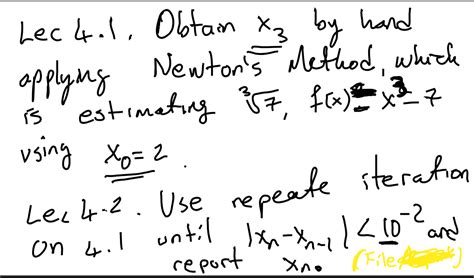 Lec 4.1. Obtain x₃ by hand
applying Newton's Method, which
is estimating ∛7, f(x) = x³ - 7
using x₀ = 2.
Lec 4-2. Use repeate iteration
on 4.1 until |xₙ - xₙ₋₁| < 10⁻² and
report xₙ. (File